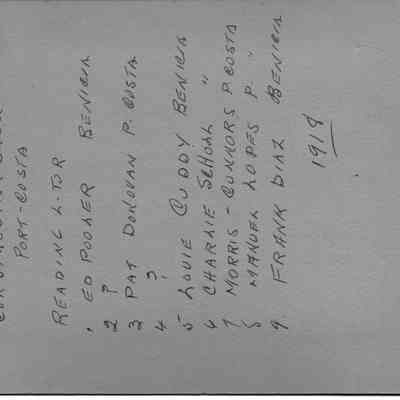 PORT-COSTA
READING L-TOR
1 ED POOLER BENICIA
2 ?
3 PAT DONOVAN P. COSTA
4 ?
5 LOUIE CUDDY BENICIA
6 CHARLIE SCHOLL "
7 MORRIS-CONNORS P. COSTA
8 MANUEL LOPES P. "
9. FRANK DIAZ BENICIA
1918